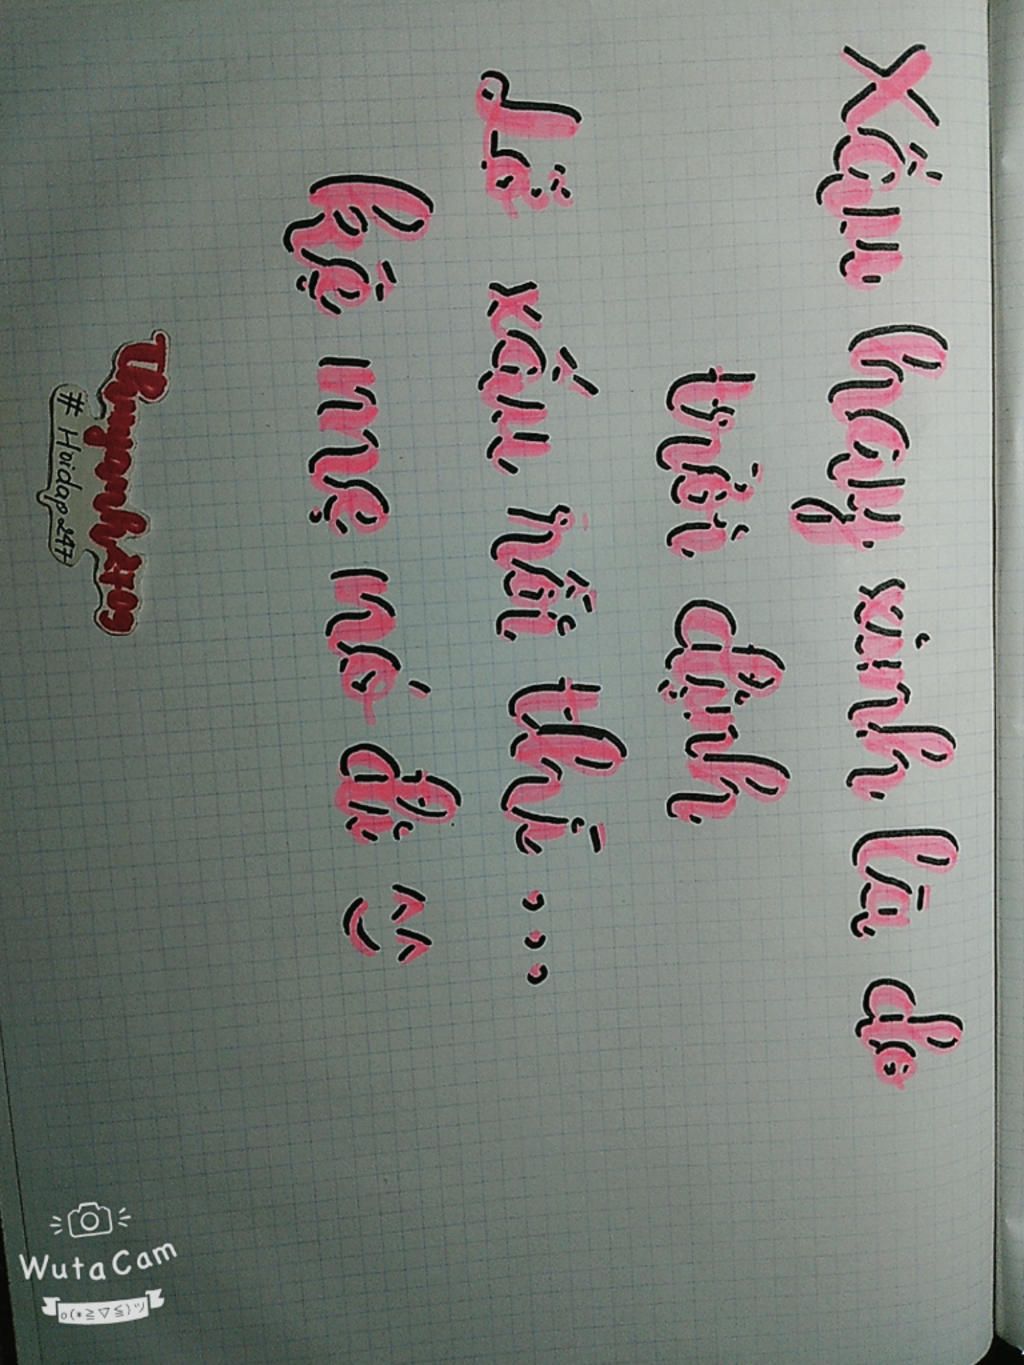 Xấu hay xinh là do
trời định
Lỡ xấu rồi thì ...
kệ mẹ nó đi ^^
Thuyanh2709
# Hoidap247
WutaCam
o(*≧▽≦)ツ